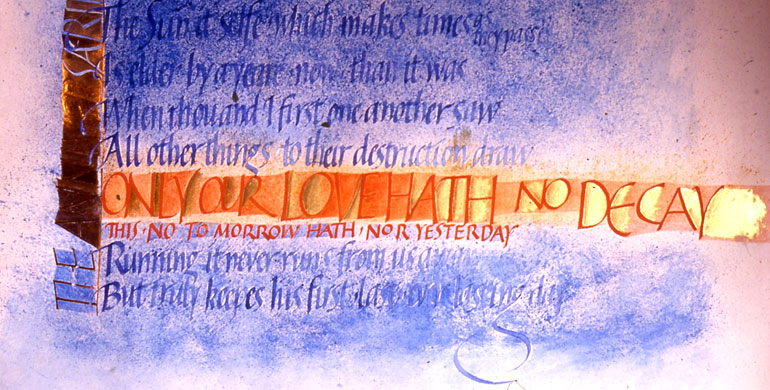 The Sun it selfe which makes times as they passe
Is elder by a yeare now than it was
When thou and I first one another saw
All other things to their destruction draw
ONLY OUR LOVE HATH NO DECAY
THIS · NO TO MORROW HATH · NOR YESTERDAY
Running it never runs from us away
But truly keepes his first last everlasting day
THE